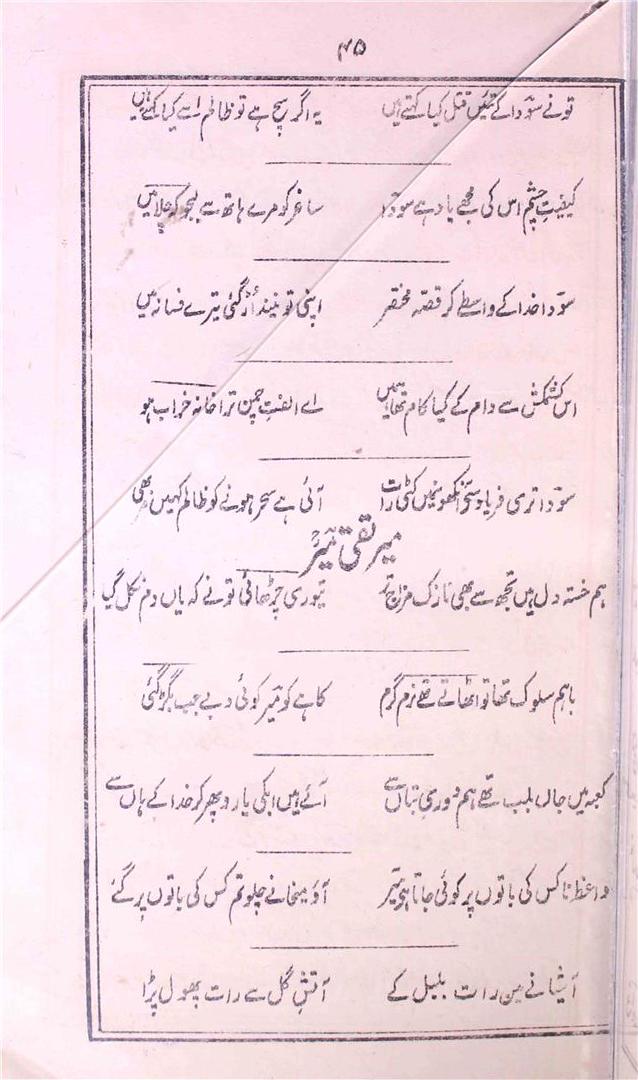 ۴۵
تونے سودا کے تئیں قتل کیا کہتے ہیں یہ اگر سچ ہے تو ظالم اسے کیا کہتے ہیں
کیفیتِ چشم اس کی مجھے یاد ہے سودا ساغر کو مرے ہاتھ سے لیجو کہ چلا میں
سودا خدا کے واسطے کر قصہ مختصر اپنی تو نیند اُڑ گئی تیرے فسانہ میں
اس کشمکش سے دام کے کیا کام تھا ہمیں اے الفتِ چمن ترا خانہ خراب ہو
سودا تری فریاد سے آنکھوں میں کٹی رات آئی ہے سحر ہونے کو ظالم کہیں مر بھی
میر تقی میر
ہم خستہ دل ہیں تجھ سے بھی نازک مزاج تر تیوری چڑھائی تونے کہ یاں دم نکل گیا
باہم سلوک تھا تو اٹھاتے تھے نرم گرم کاہے کو میر کوئی دبے جب بگڑ گئی
کعبہ میں جاں بلب تھے ہم دوریِ بتاں سے آئے ہیں ابکی یارو پھر کر خدا کے ہاں سے
واعظ ناکس کی باتوں پر کوئی جاتا ہے میر آؤ میخانے چلو تم کس کی باتوں پر گئے
آشیانے مین رات بلبل کے آتشِ گل سے رات پھول پڑا